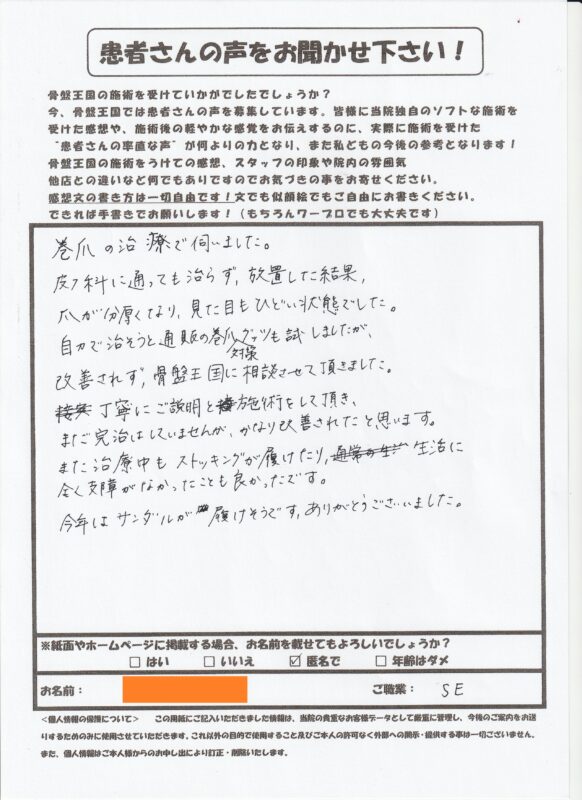 患者さんの声をお聞かせ下さい！
骨盤王国の施術を受けていかがでしたでしょうか？
今、骨盤王国では患者さんの声を募集しています。皆様に当院独自のソフトな施術を
受けた感想や、施術後の軽やかな感覚をお伝えするのに、実際に施術を受けた
“患者さんの率直な声”が何よりの力となり、また私どもの今後の参考となります！
骨盤王国の施術をうけての感想、スタッフの印象や院内の雰囲気
他店との違いなど何でもありですのでお気づきの事をお寄せください。
感想文の書き方は一切自由です！文でも似顔絵でもご自由にお書きください。
できれば手書きでお願いします！（もちろんワープロでも大丈夫です）
巻爪の治療で伺いました。
皮フ科に通っても治らず，放置した結果，
爪が分厚くなり，見た目もひどい状態でした。
自力で治そうと通販の巻爪対策グッツも試しましたが、
改善されず，骨盤王国に相談させて頂きました。
丁寧にご説明と施術をして頂き，
まだ完治はしていませんが，かなり改善されたと思います。
また治療中もストッキングが履けたり，生活に
全く支障がなかったことも良かったです。
今年はサンダルが履けそうです，ありがとうございました。
※紙面やホームページに掲載する場合、お名前を載せてもよろしいでしょうか？
□ はい □ いいえ ☑ 匿名で □ 年齢はダメ
お名前： ご職業： SE
＜個人情報の保護について＞ この用紙にご記入いただきました情報は、当院の貴重なお客様データとして厳重に管理し、今後のご案内をお送
りするためのみに使用させていただきます。これ以外の目的で使用すること及びご本人の許可なく外部への開示・提供する事は一切ございません。
また、個人情報はご本人様からのお申し出により訂正・削除いたします。